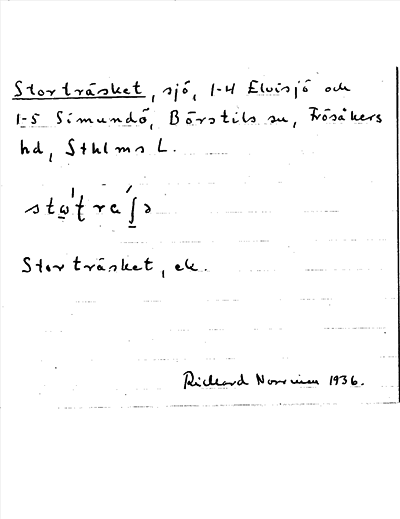 Storträsket, sjö, 1-4 Elvisjö och
1-5 Simundö, Börstils sn, Frösåkers
hd, Sthlms L.
Storträsket, ek.
Richard Norrman 1936.